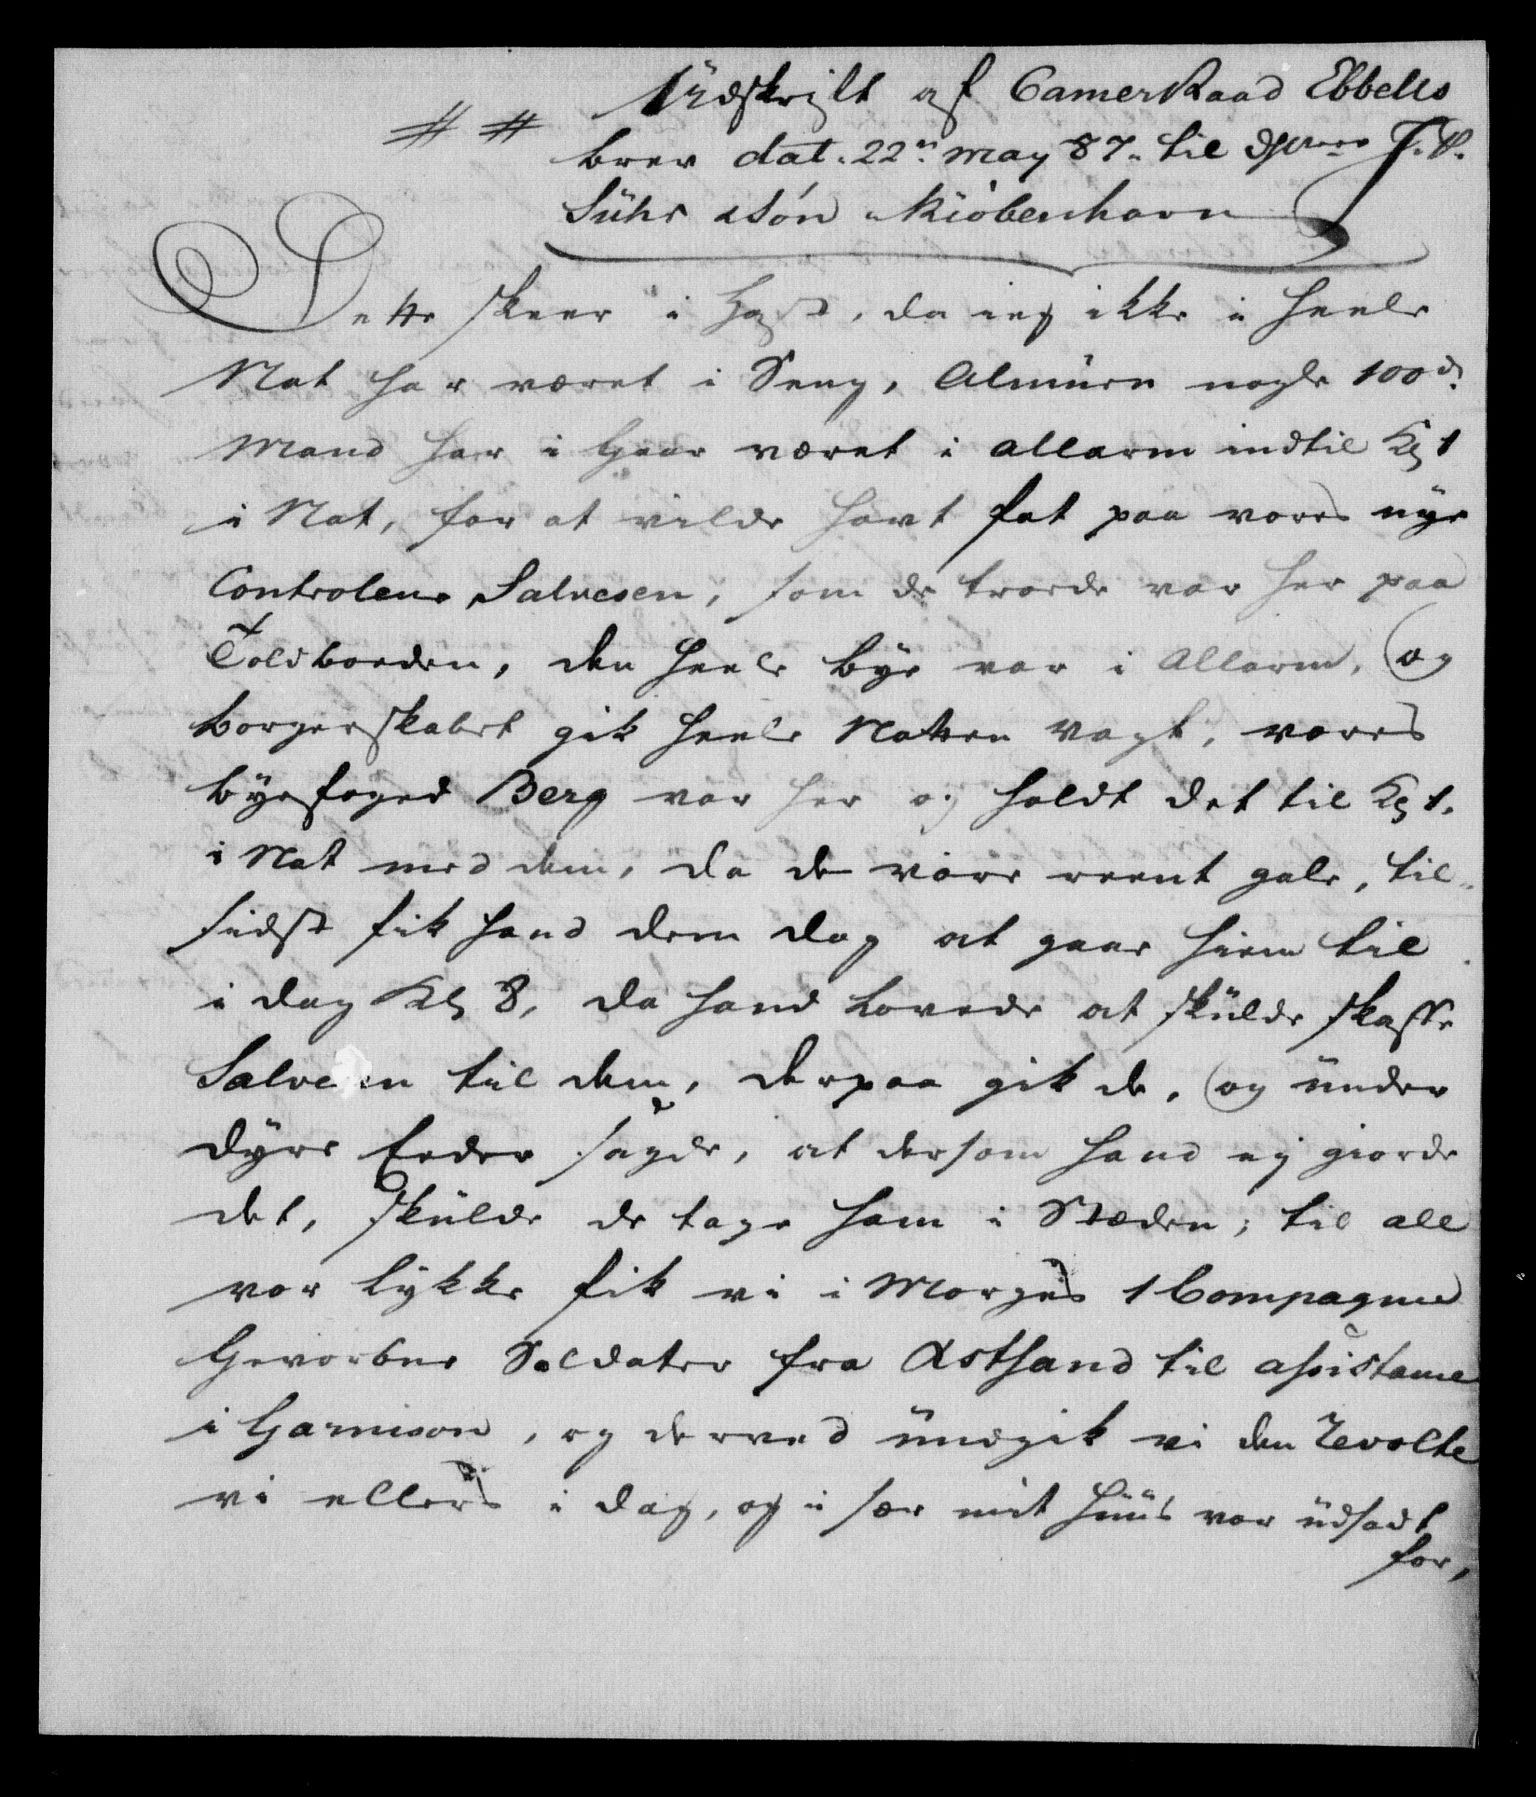 Udskrift af CamerRaad Ebbells
# #
brev dat. 22n May 87. til J. P.
Suhr & Søn Kiöbenhavn
Dette skeer i Hast, da ieg ikke i heele
Nat har været i Seng, Almuen nogle 100de
Mand har i Gaar været i Allarm indtil Kl 1
i Nat, for at vilde havt fat paa vores nye
Controleur Salvesen, som de troede var her paa
Toldboeden, den heele bye var i Allarm, og
borgerskabet gik heele Natten Vagt, vores
byefoged Berg var her og holdt det til Kl 1.
i Nat med dem, da de vare reent gale, til-
sidst fik hand dem dog at gaae hiem til
i dag Kl 8, da hand lovede at skulde skaffe
Salvesen til dem, derpaa gik de, og under
dyre Eeder sagde, at dersom hand ej giorde
det, skulde de tage ham i Stæden, til all
vor lykke fik vi i Morges 1 Compagnie
Gevorbne Soldater fra Østsand til assistance
i Garnison, og derved undgik vi den Revolte
vi ellers i dag, og i sær mit Huus var udsadt
for,